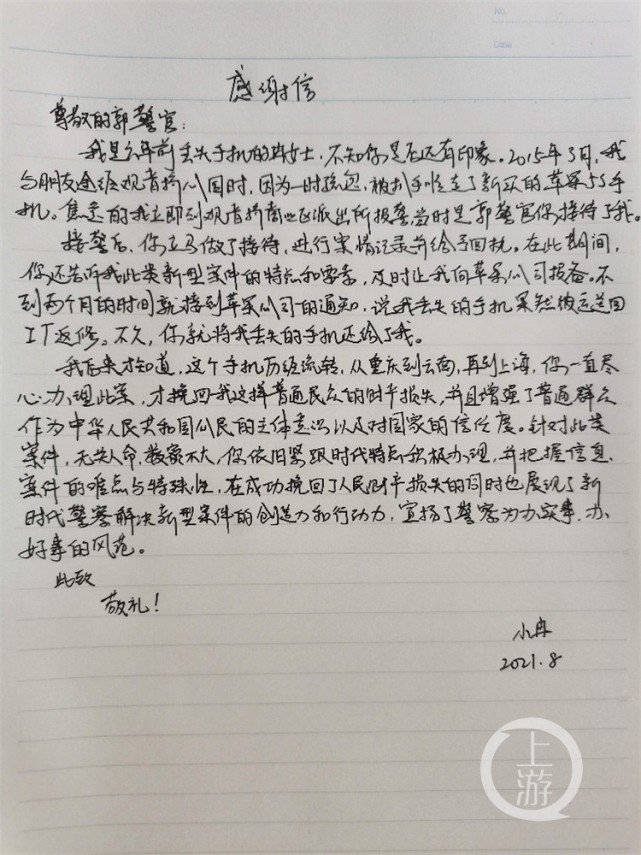 No.
Date
感谢信
尊敬的郭警官：
我是六年前丢失手机的冉女士，不知你是否还有印象。2015年3月，我
与朋友途经观音桥公园时，因为一时疏忽，被扒手顺走了新买的苹果5S手
机。焦急的我立即到观音桥商业区派出所报警当时是郭警官你接待了我。
接警后，你立马做了接待，进行案情记录并给予回执。在此期间，
你还告诉我此类新型案件的特点和要素，及时让我向苹果公司报备。不
到两个月的时间就接到苹果公司的通知，说我丢失的手机果然被运送回
工厂返修。不久，你就将我丢失的手机还给了我。
我后来才知道，这个手机历经流转，从重庆到云南，再到上海，你一直尽
心办理此案，才挽回我这样普通民众的财产损失，并且增强了普通群众
作为中华人民共和国公民的主体意识以及对国家的信任度。针对此类
案件，无失人命，数额不大，你依旧紧跟时代特点积极办理，并把握信息、
案件的难点与特殊性，在成功挽回了人民财产损失的同时也展现了新
时代警察解决新型案件的创造力和行动力，宣扬了警察为办实事、办
好事的风范。
此致
敬礼！
小冉
2021.8
上游